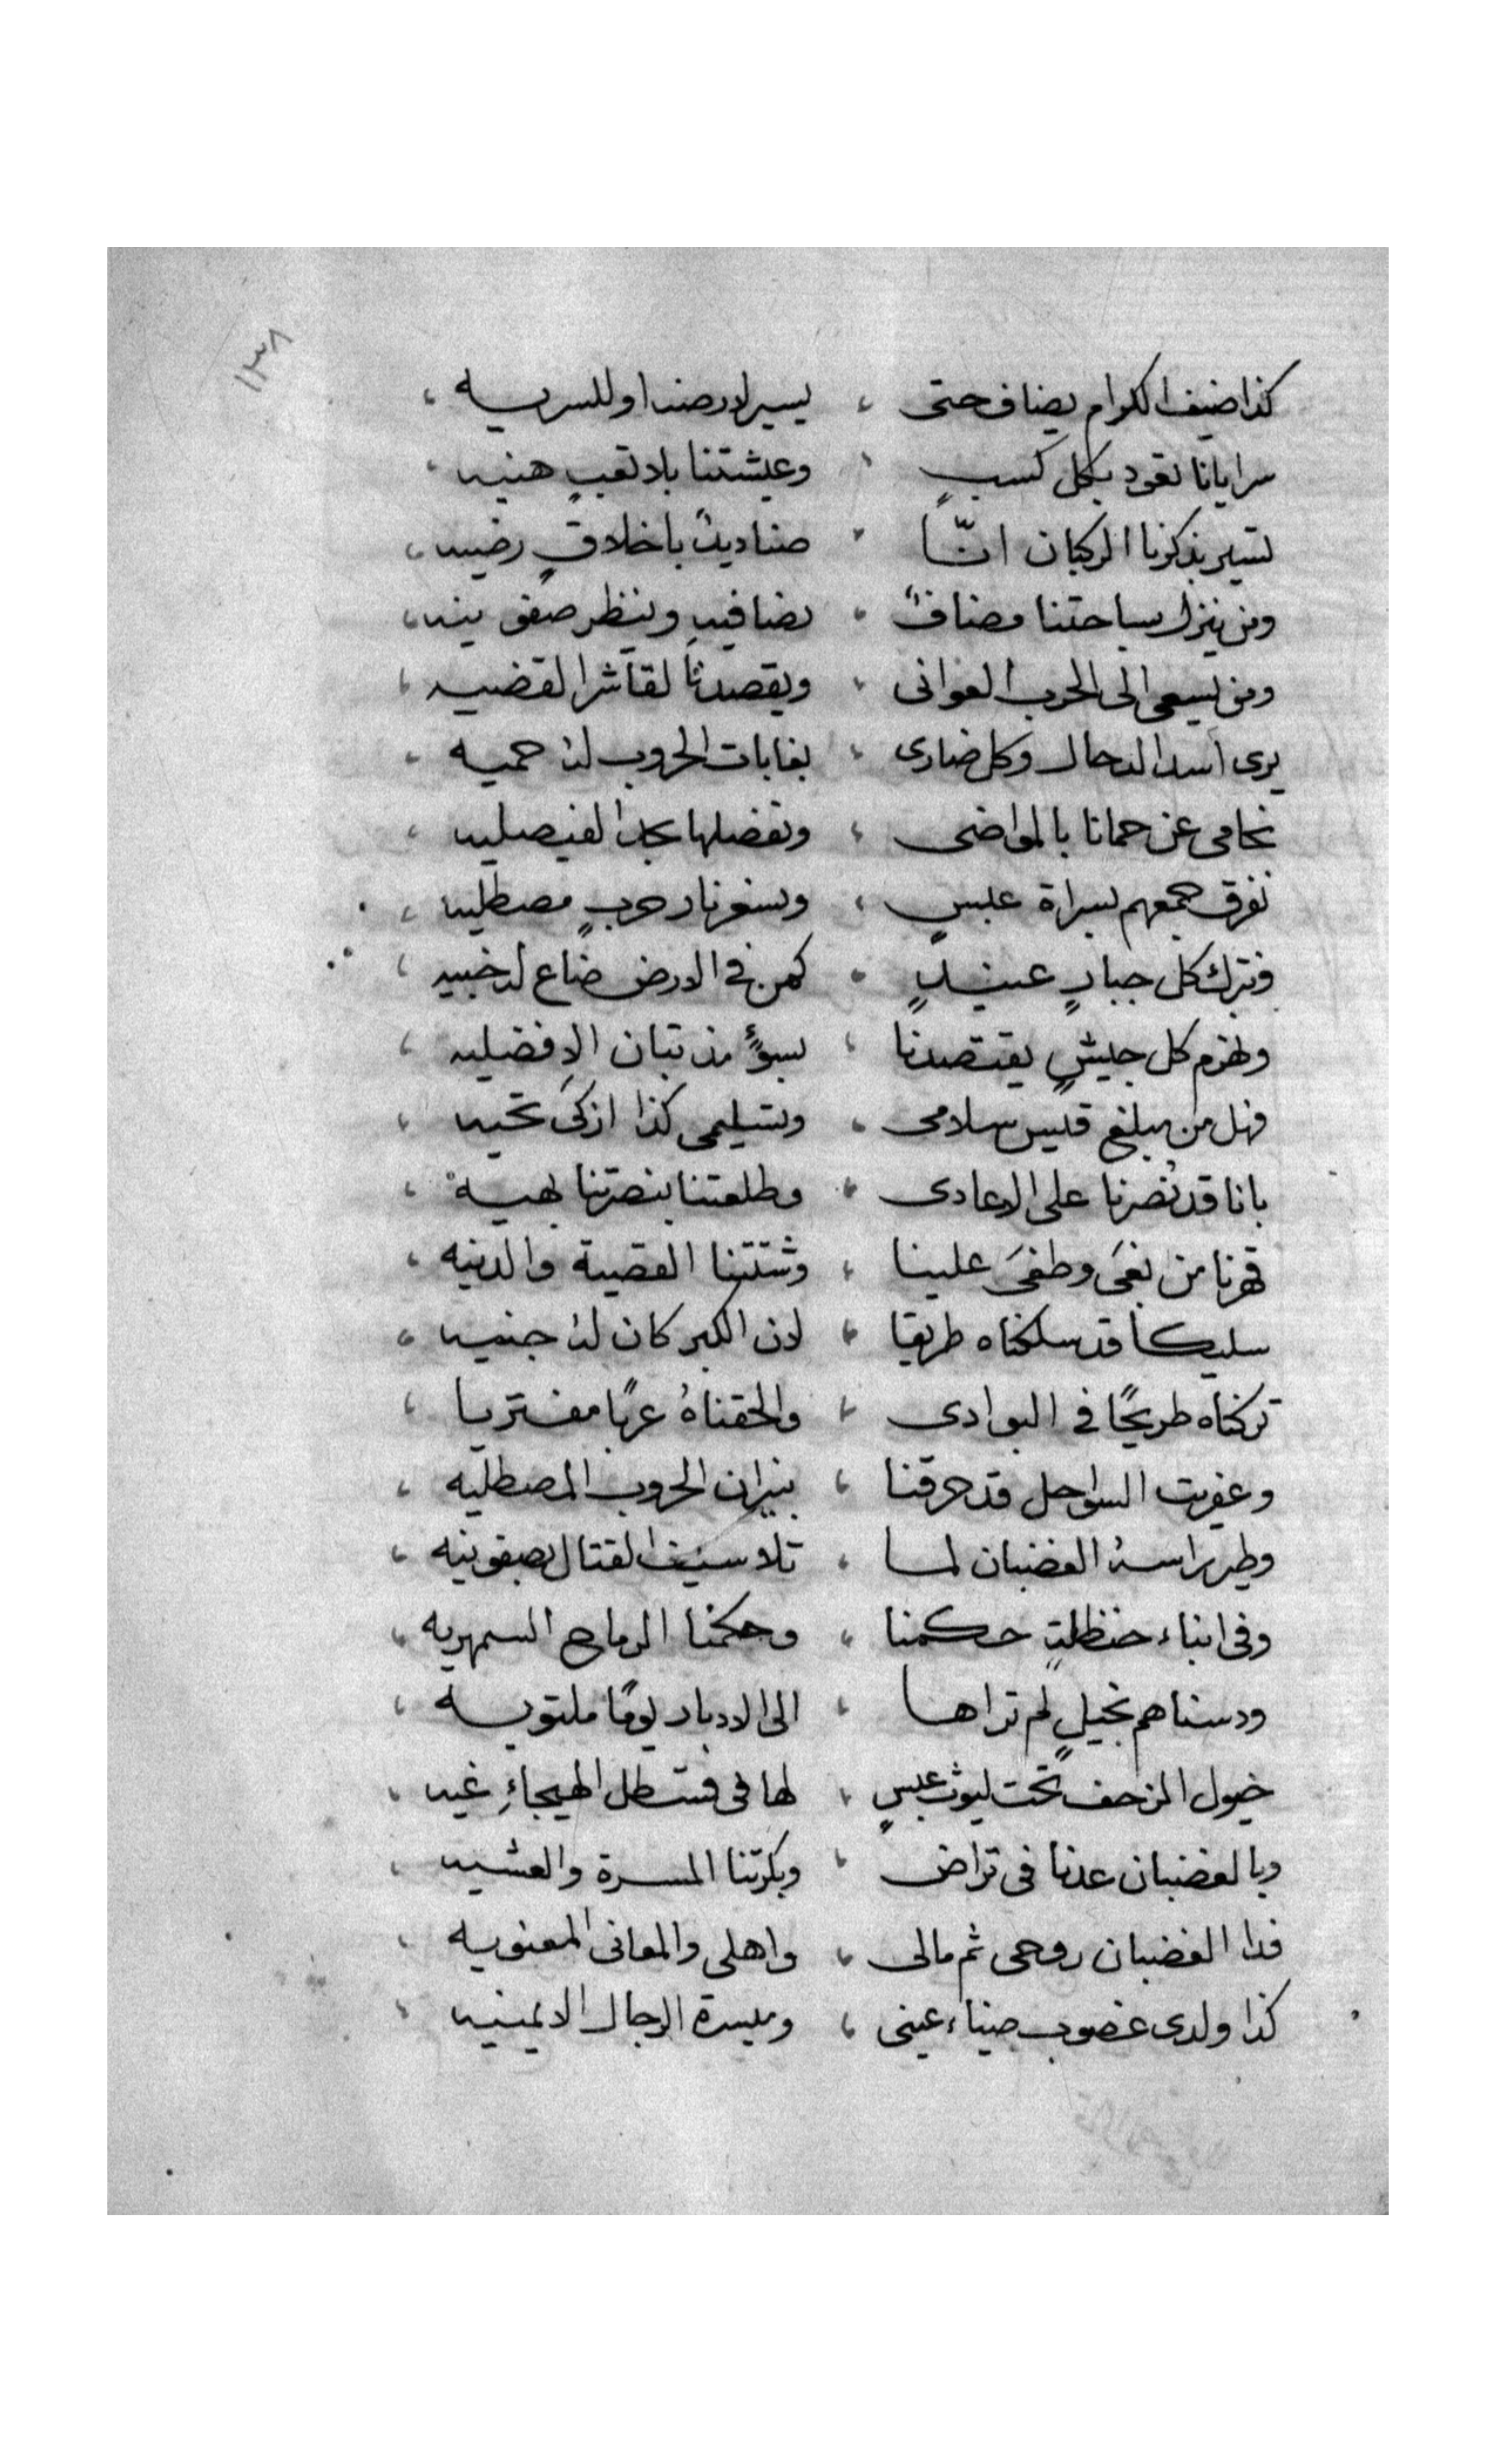 ١٣٨
كذا ضيف الكرام يضاف حتى ، يسير لارضنا وللسريه ،
سرايانا تعود بكل كسبٍ ، وعيشتنا بلا تعبٍ هنيه ،
تسير بذكرنا الركبان انّا ، صناديدً باخلاقٍ رضيه ،
ومن ينزل بساحتنا مضافً ، يضافيهِ وينظر صفو نيه ،
ومن يسعى الى الحرب العوانى ، ويقصدنا لقا شر القضيه ،
يرى اسد الدحال وكل ضارى ، بغابات الحروب لهُ حميه ،
نحامى عن حمانا بالمواضى ، ونفضلها بحد الفيصليه ،
نفرق جمعهم بسراة عبسٍ ، ونسعر نار حربٍ مصطليه ،
ونترك كل جبارٍ عنيدٍ ، كمن فى الارض ضاع لهُ خبيه ،
ونهزم كل جيشٍ يقتصدنا ، بسوءٍ مذ تبان الافضليه ،
فهل من مبلغ قيس سلامى ، وتسليمى كذا ازكىَ تحيه ،
بانا قد نُصرنا على الاعادى ، وطلعتنا بنصرتنا بهيه ،
قهرنا من بغىَ وطغىَ علينا ، وشتتنا القصية والدنيه ،
سليكاً قد سلكناه طريقا ، لان الكبر كان لهُ جنيه ،
تركناه طريحًا فى البوادى ، والحقناهُ عربًا مفتريا ،
وعفريت السواحل قد حرقنا ، بنيران الحروب المصطليه ،
وطير راسهُ الغضبان لما ، تلا سيف القتال بصفو نيه ،
وفى ابناء حنظلةٍ حكمنا ، وحكمنا الرماح السمهريه ،
ودسناهم بخيلٍ لم تراها ، الى الادبار يومًا ملتويه ،
خيول الزحف تحت ليوث عبسٍ ، لها فى قسطل الهيجاءِ غيه ،
وبالغضبان عدنا فى تراضى ، وبكرتنا المسرة والعشيه ،
فدا الغضبان روحى ثم مالى ، واهلى والمعانى المعنويه ،
كذا ولدى غضوب ضياء عينى ، وميسرة الرجال الايمنيه ،